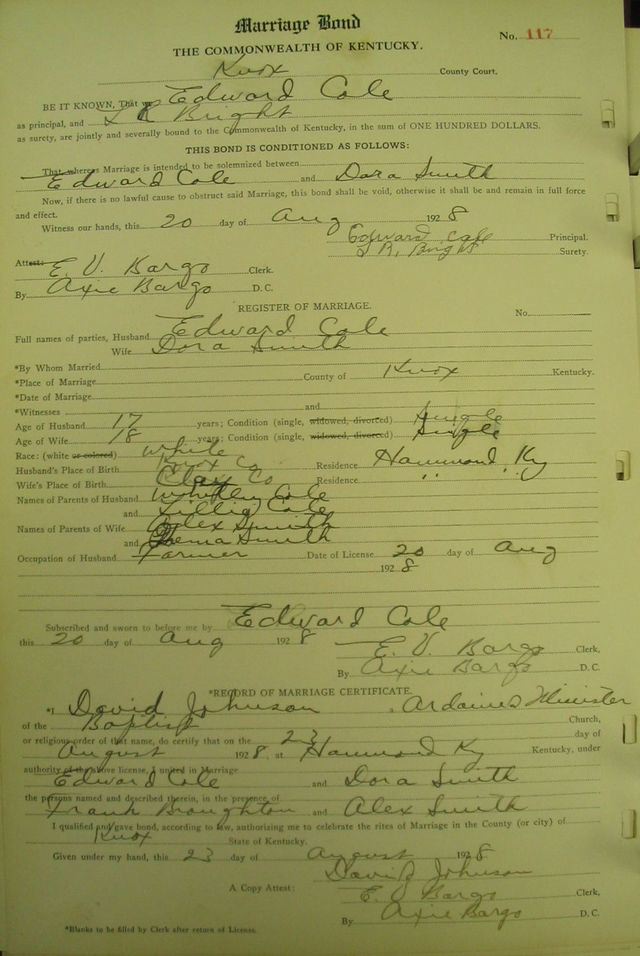 Marriage Bond
No. 117
THE COMMONWEALTH OF KENTUCKY.
Knox County Court.
BE IT KNOWN, That we Edward Cole
as principal, and L R Bright
as surety, are jointly and severally bound to the Commonwealth of Kentucky, in the sum of ONE HUNDRED DOLLARS.
THIS BOND IS CONDITIONED AS FOLLOWS:
That whereas Marriage is intended to be solemnized between
Edward Cole and Dora Smith
Now, if there is no lawful cause to obstruct said Marriage, this bond shall be void, otherwise it shall be and remain in full force
and effect.
Witness our hands, this 20 day of Aug 1928
Edward Cole Principal.
L R, Bright Surety.
Attest:
E. V. Bargo Clerk.
By Axie Bargo D. C.
REGISTER OF MARRIAGE.
No.
Full names of parties, Husband Edward Cole
Wife Dora Smith
*By Whom Married
*Place of Marriage County of Knox Kentucky.
*Date of Marriage
*Witnesses and
Age of Husband 17 years; Condition (single, widowed, divorced) single
Age of Wife 18 years; Condition (single, widowed, divorced) single
Race: (white or colored) white
Husband's Place of Birth Knox Co Residence Hammond, Ky
Wife's Place of Birth Clay Co Residence " "
Names of Parents of Husband Whitley Cole
and Lillie Cole
Names of Parents of Wife Alex Smith
and Smith
Occupation of Husband Farmer Date of License 20 day of Aug
1928
Subscribed and sworn to before me by Edward Cole
this 20 day of Aug 1928
E. V. Bargo Clerk,
By Axie Bargo D. C.
*RECORD OF MARRIAGE CERTIFICATE.
*I David Johnson, Ardaines Minister
of the Baptist Church,
or religious order of that name, do certify that on the 23 day of
August 1928, at Hammond Ky Kentucky, under
authority of the above license, I united in Marriage
Edward Cole and Dora Smith
the persons named and described therein, in the presence of
Frank Broughton and Alex Smith
I qualified and gave bond, according to law, authorizing me to celebrate the rites of Marriage in the County (or city) of
Knox State of Kentucky.
Given under my hand, this 23 day of August 1928
David Johnson
A Copy Attest: E. V. Bargo Clerk,
By Axie Bargo D. C.
*Blanks to be filled by Clerk after return of License.